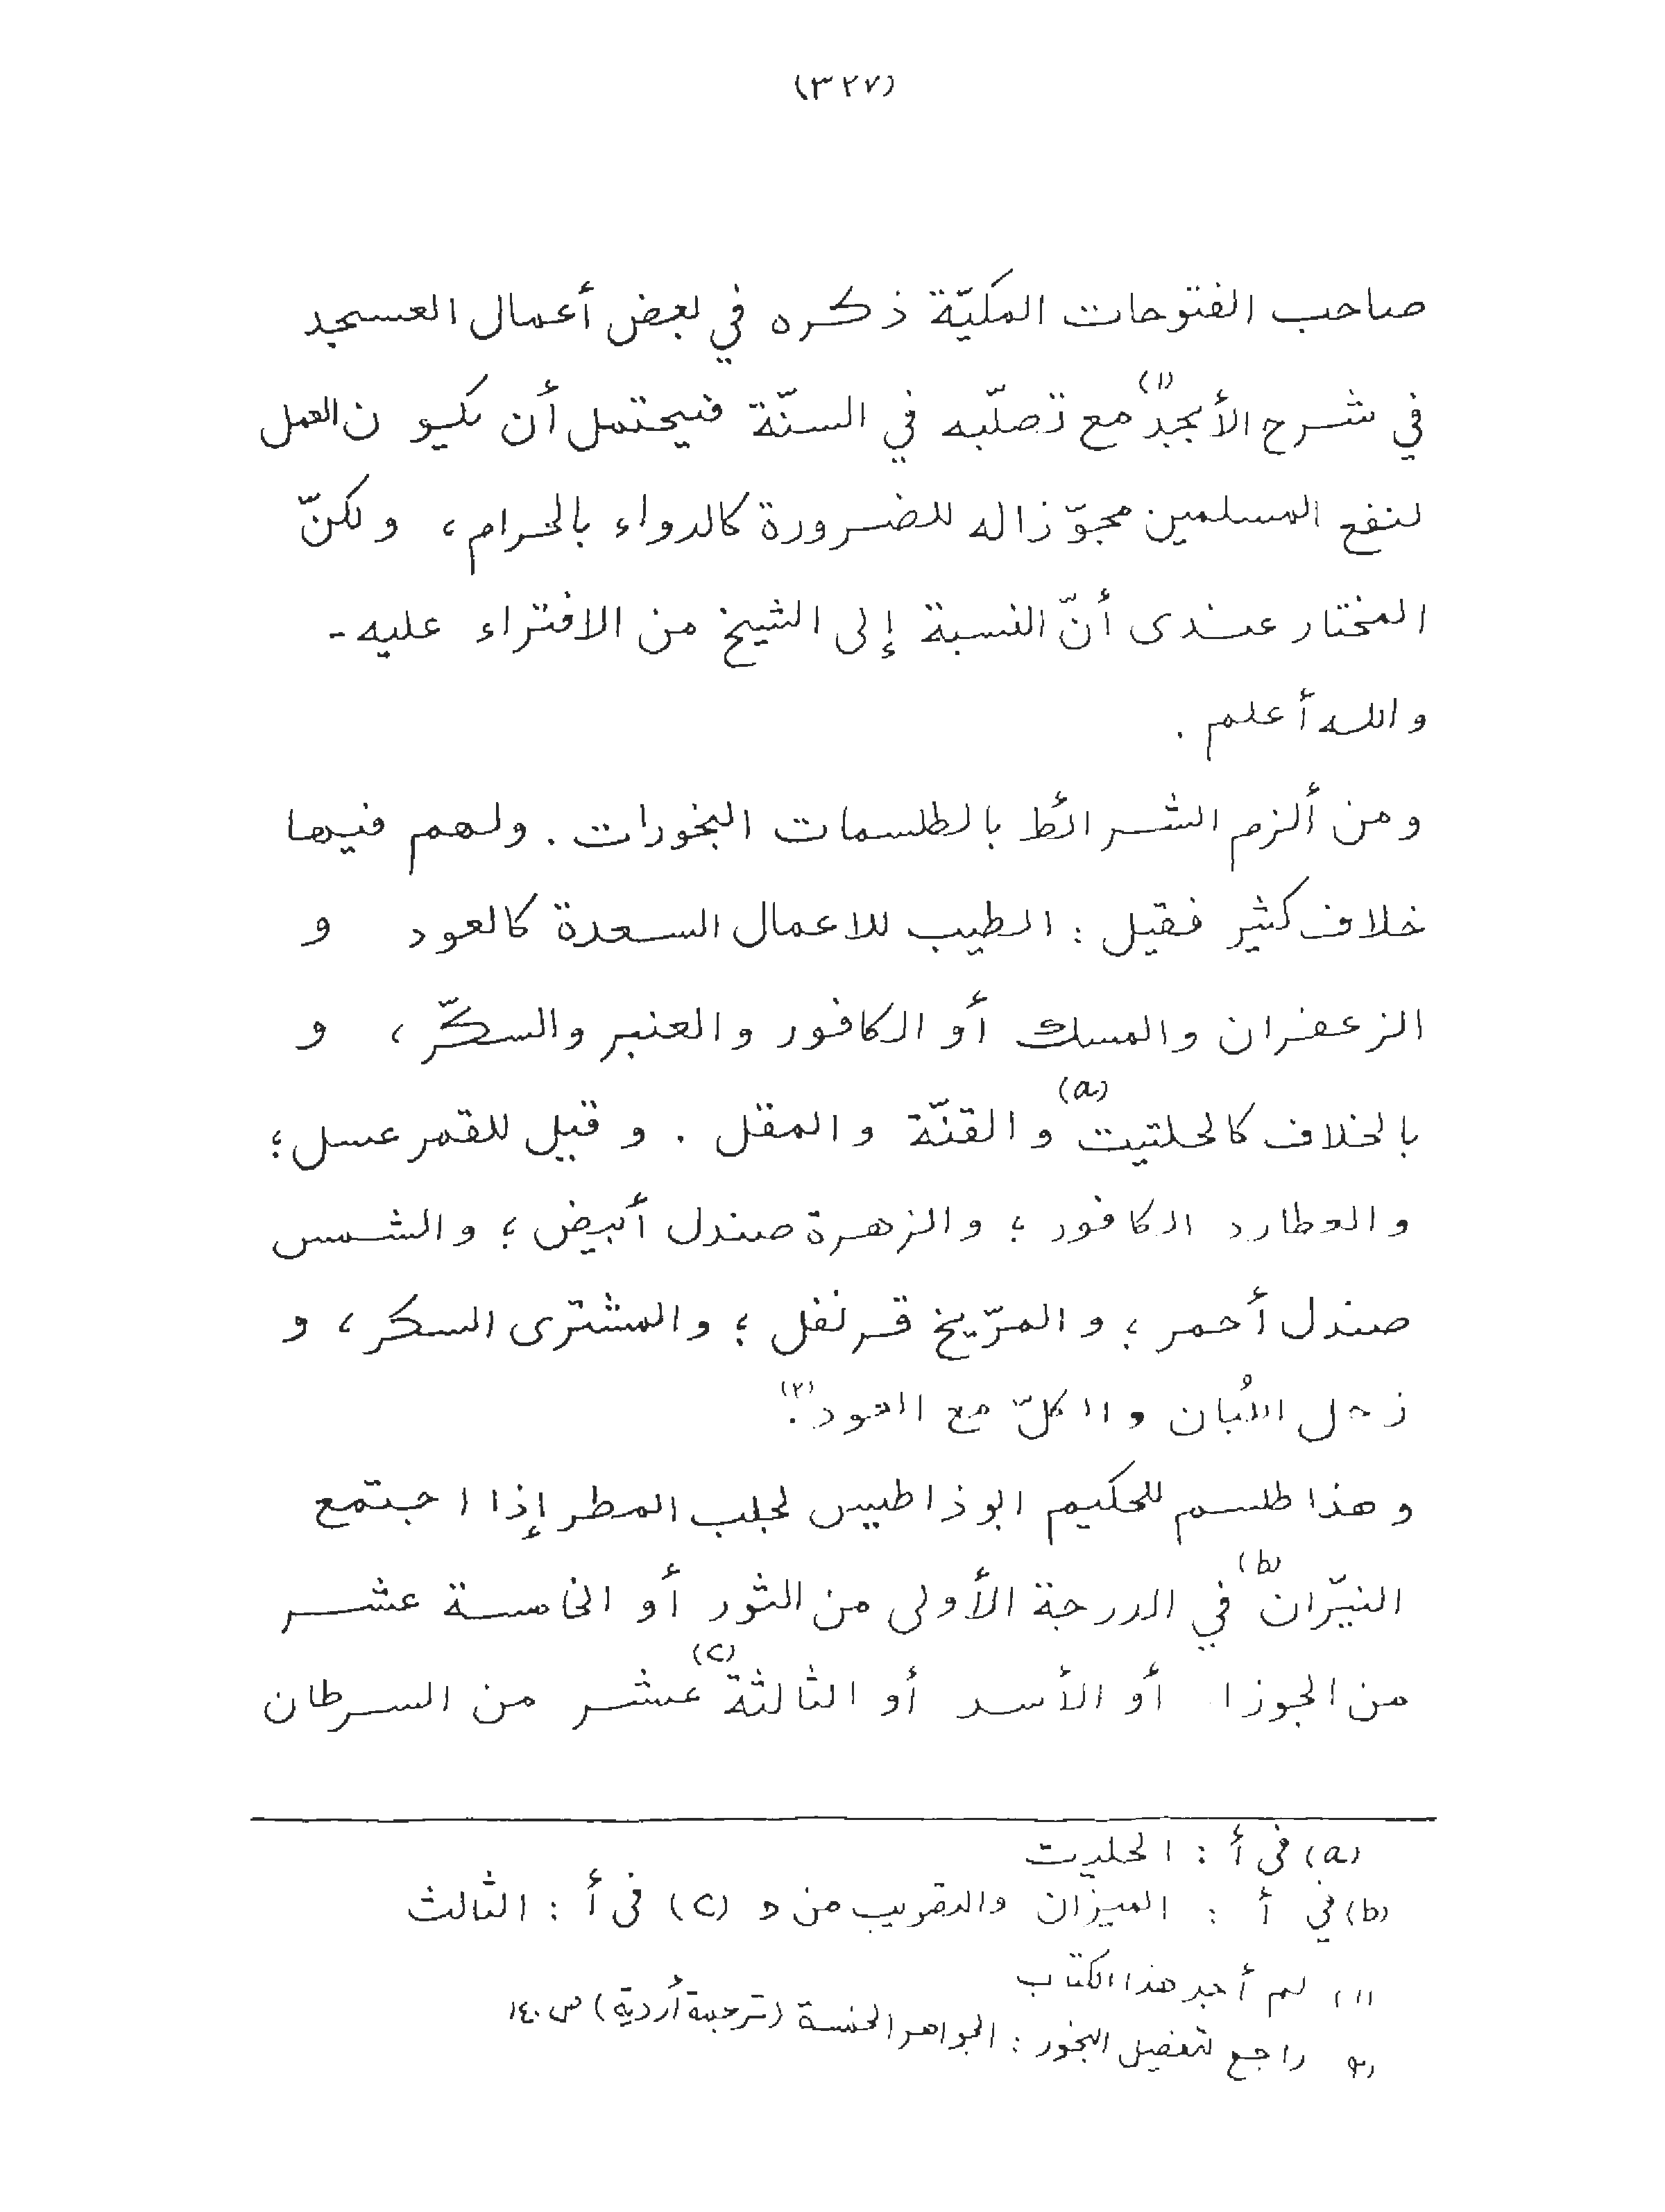 (٣٢٧)
صاحب الفتوحات المكيّة ذكره في بعض أعمال العسجد
في شرح الأبجد(١) مع تصلّبه في السنّة فيحتمل أن يكون العمل
لنفع المسلمين مجوّزا له للضرورة كالدواء بالحرام، ولكنّ
المختار عندى أنّ النسبة إلى الشيخ من الافتراء عليه -
والله أعلم .
ومن ألزم الشرائط بالطلسمات البخورات . ولهم فيها
خلاف كثير فقيل : الطيب للاعمال السعدة كالعود و
الزعفران والمسك أو الكافور والعنبر والسكّر ، و
بالخلاف كالحلتيت(a) والقنّة والمقل . وقيل للقمر عسل ؛
والعطارد الكافور ؛ والزهرة صندل أبيض ؛ والشمس
صندل أحمر ؛ والمرّيخ قرنفل ؛ والمشترى السكر ، و
زحل اللُبان والكلّ مع العود .(٢)
وهذا طلسم للحكيم ابوذاطيس لجلب المطر إذا اجتمع
النيّران(b) في الدرجة الأولى من الثور أو الخامسة عشر
من الجوزا أو الأسد أو الثالثة(c) عشر من السرطان
(a) فى أ : الحليت
(b) في أ : الميزان والتقريب من د (c) فى أ : الثالث
(١) لم أجد هذا الكتاب
(٢) راجع لتفصيل البخور : الجواهر الخمسة (ترجمة أردية) ص ١٤٠